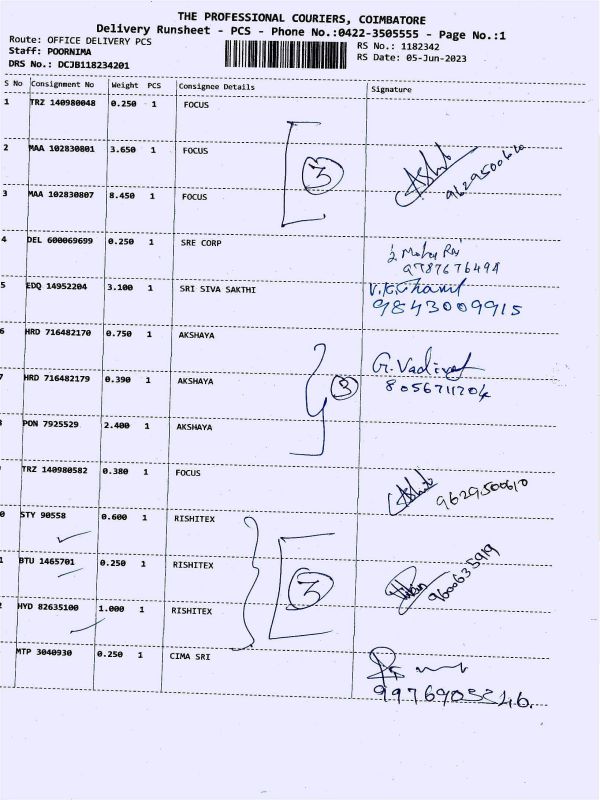 THE PROFESSIONAL COURIERS, COIMBATORE
Delivery Runsheet - PCS - Phone No.:0422-3505555 - Page No.:1
Route: OFFICE DELIVERY PCS
RS No.: 1182342
Staff: POORNIMA
RS Date: 05-Jun-2023
DRS No.: DCJB118234201
S No Consignment No Weight PCS Consignee Details Signature
1 TRZ 140980048 0.250 1 FOCUS
2 MAA 102830801 3.650 1 FOCUS
3
9629500610
3 MAA 102830807 8.450 1 FOCUS
4 DEL 600069699 0.250 1 SRE CORP
5 EDQ 14952204 3.100 1 SRI SIVA SAKTHI
9843009915
6 HRD 716482170 0.750 1 AKSHAYA
7 HRD 716482179 0.390 1 AKSHAYA
3
8056711204
PON 7925529 2.400 1 AKSHAYA
TRZ 140980582 0.380 1 FOCUS
9629500610
0 STY 90558 0.600 1 RISHITEX
1 BTU 1465701 0.250 1 RISHITEX
3
9600635919
2 HYD 82635100 1.000 1 RISHITEX
MTP 3040930 0.250 1 CIMA SRI